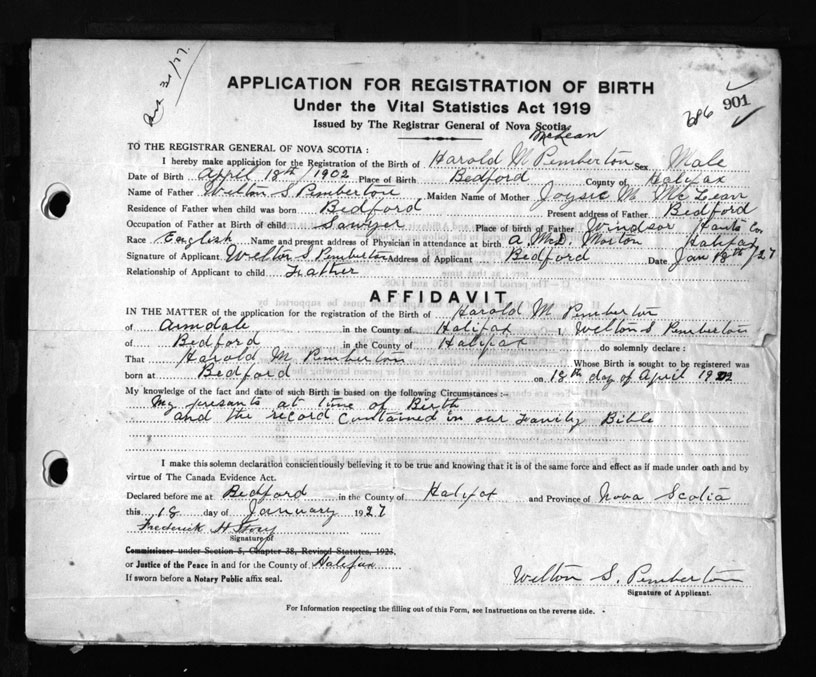 APPLICATION FOR REGISTRATION OF BIRTH
686 901
Under the Vital Statistics Act 1919
Issued by The Registrar General of Nova Scotia
McLean
TO THE REGISTRAR GENERAL OF NOVA SCOTIA :
I hereby make application for the Registration of the Birth of Harold M Pemberton Sex Male
Date of Birth April 18th/1902 Place of Birth Bedford County of Halifax
Name of Father Welton S Pemberton Maiden Name of Mother Joysie M McLean
Residence of Father when child was born Bedford Present address of Father Bedford
Occupation of Father at Birth of child Sawyer Place of birth of Father Windsor Hants Co.
Race English Name and present address of Physician in attendance at birth a. McD. Morton Halifax
Signature of Applicant. Welton S. Pemberton Address of Applicant Bedford Date. Jan 18th/27
Relationship of Applicant to child Father
AFFIDAVIT
IN THE MATTER of the application for the registration of the Birth of Harold M Pemberton
of Armdale in the County of Halifax I, Welton S Pemberton
of Bedford in the County of Halifax do solemnly declare :
That Harold M. Pemberton Whose Birth is sought to be registered was
born at Bedford on 18th day of April 1902
My knowledge of the fact and date of such Birth is based on the following Circumstances :-
My presants at time of Birth
and the record contained in our Family Bible
I make this solemn declaration conscientiously believing it to be true and knowing that it is of the same force and effect as if made under oath and by
virtue of The Canada Evidence Act.
Declared before me at Bedford in the County of Halifax and Province of Nova Scotia
this 18 day of January 1927
Frederick H
Signature of
Commissioner under Section 5, Chapter 38, Revised Statutes, 1923,
or Justice of the Peace in and for the County of Halifax
If sworn before a Notary Public affix seal.
Welton S. Pemberton
Signature of Applicant.
For Information respecting the filling out of this Form, see Instructions on the reverse side.